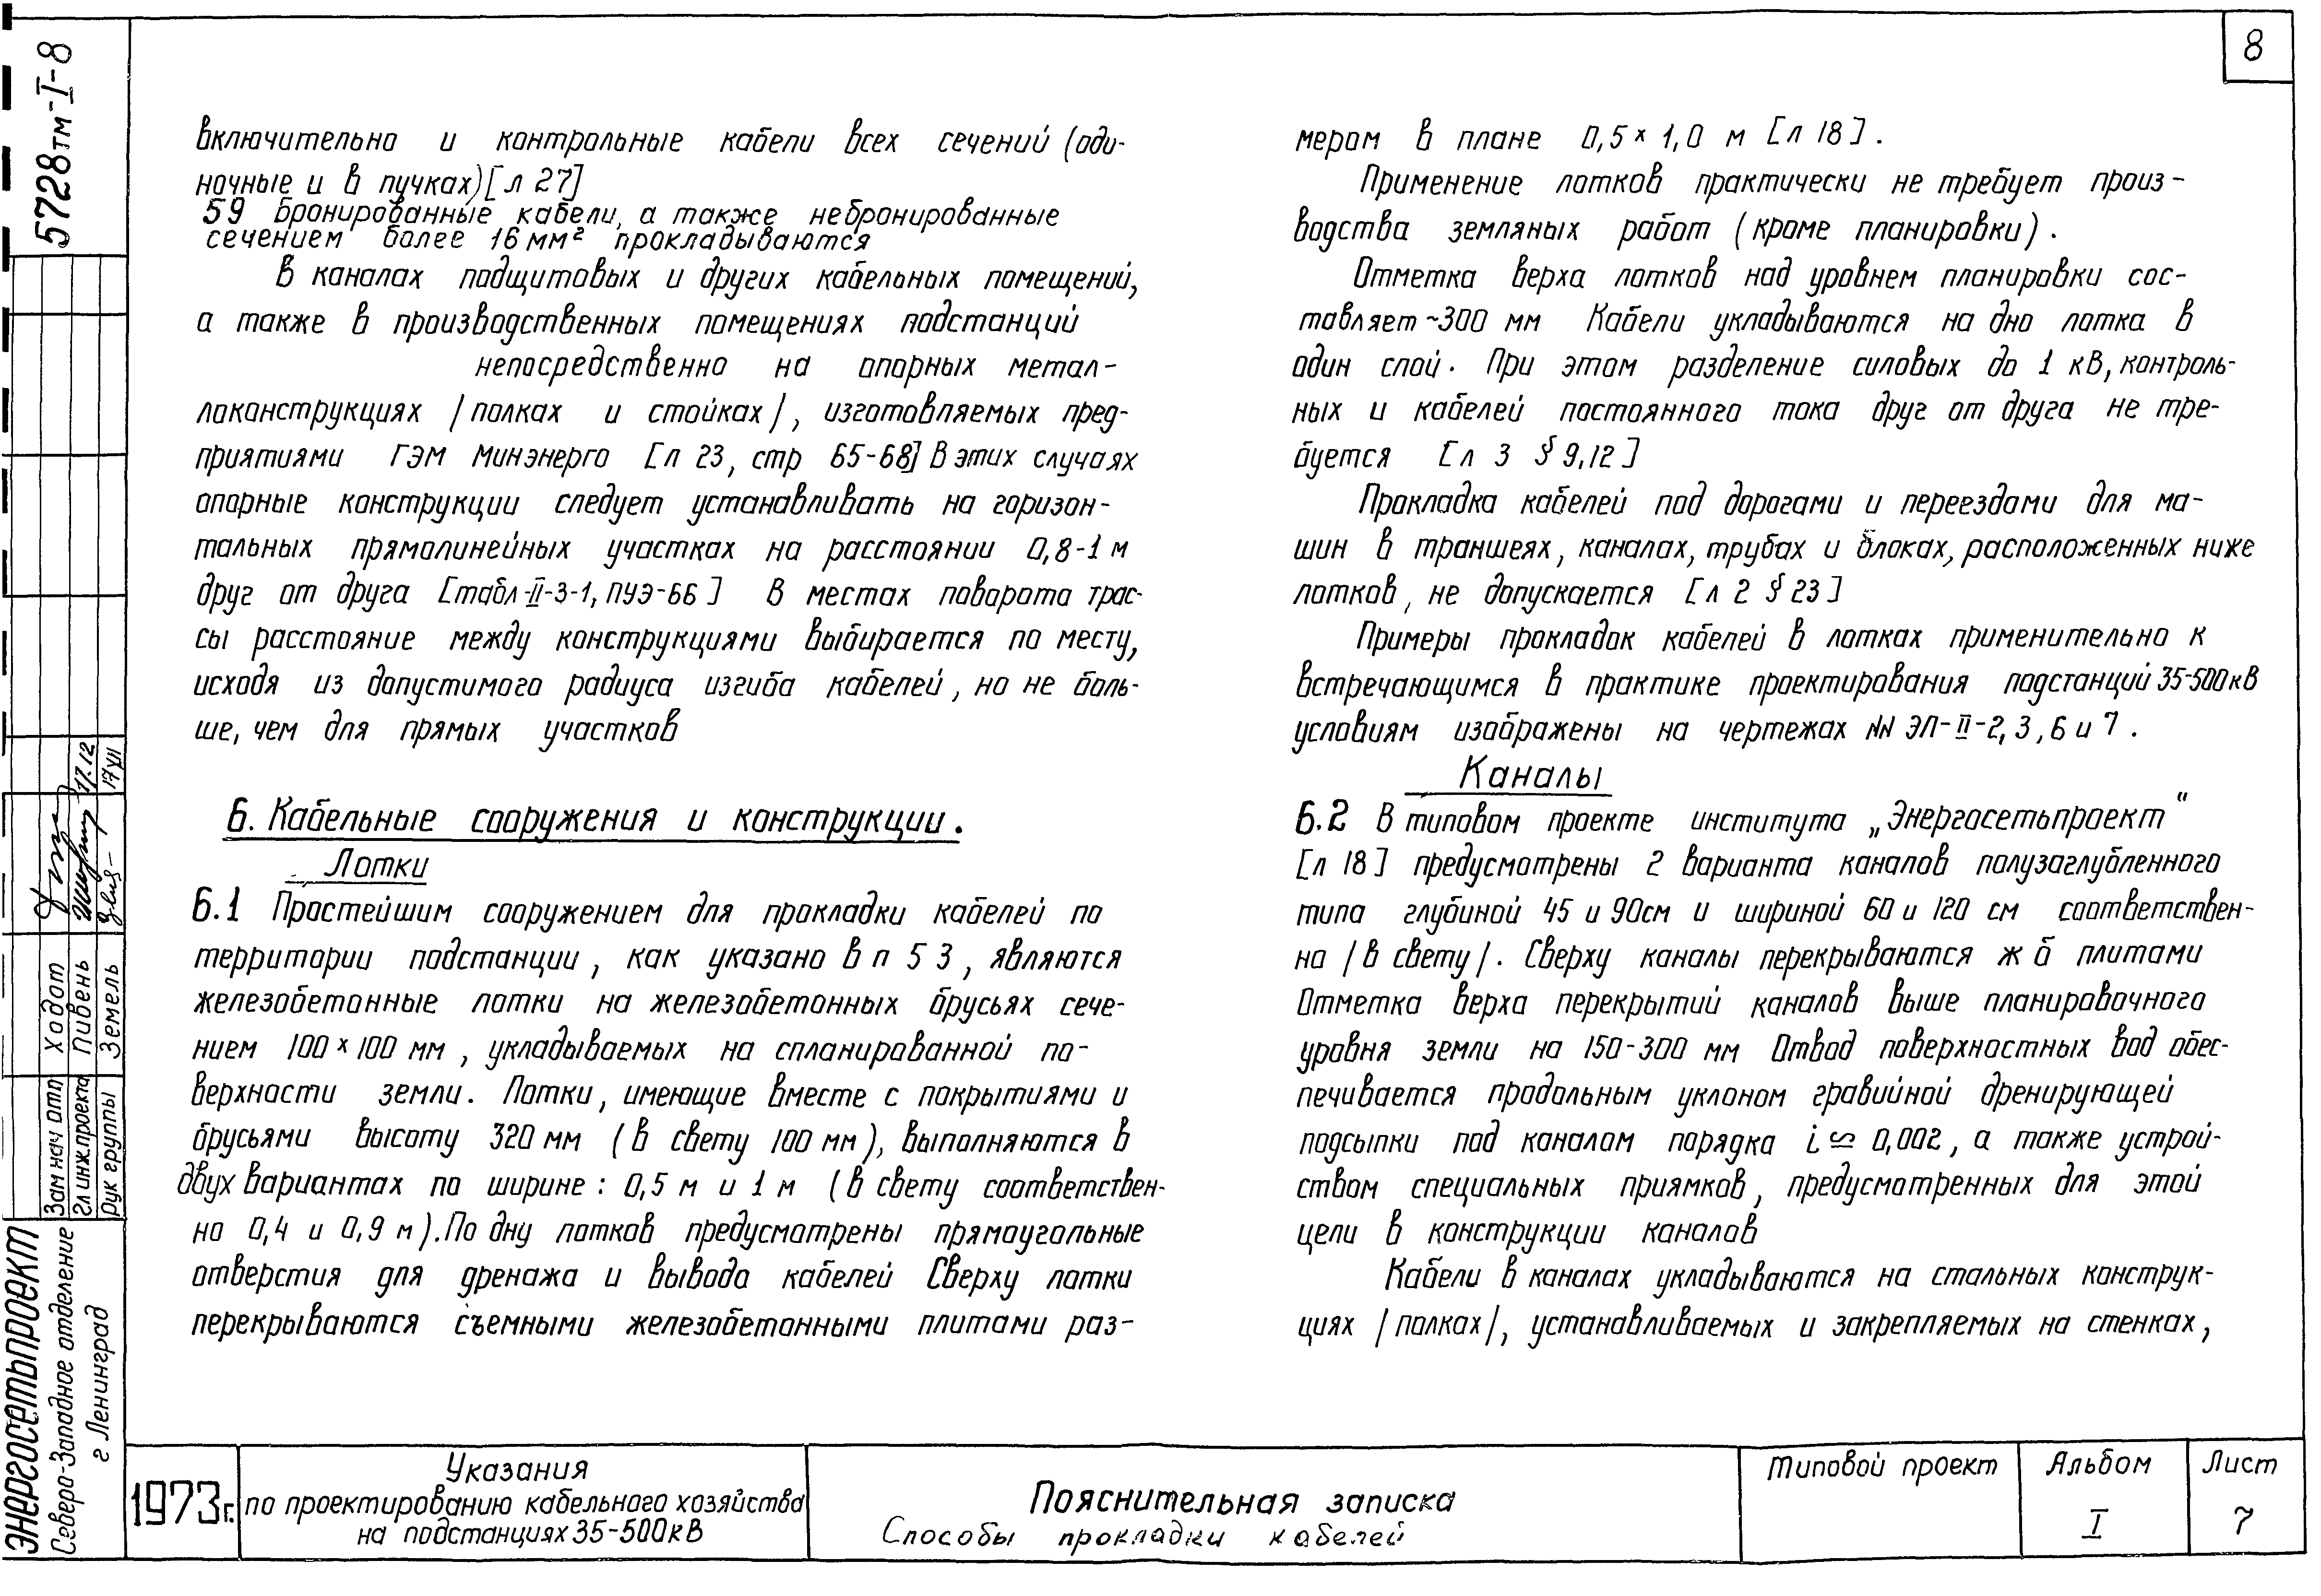 8
5728тм-I-8
включительно и контрольные кабели всех сечений (оди-
ночные и в пучках) [л 27]
59 Бронированные кабели, а также небронированные
сечением более 16 мм² прокладываются
в каналах подщитовых и других кабельных помещений,
а также в производственных помещениях подстанций
непосредственно на опорных метал-
локонструкциях /полках и стойках/, изготовляемых пред-
приятиями ГЭМ Минэнерго [л 23, стр 65-68] В этих случаях
опорные конструкции следует устанавливать на горизон-
тальных прямолинейных участках на расстоянии 0,8-1 м
друг от друга [табл-II-3-1, ПУЭ-66] В местах поворота трас-
сы расстояние между конструкциями выбирается по месту,
исходя из допустимого радиуса изгиба кабелей, но не боль-
ше, чем для прямых участков
6. Кабельные сооружения и конструкции.
Лотки
6.1 Простейшим сооружением для прокладки кабелей по
территории подстанции, как указано в п 5 3, являются
железобетонные лотки на железобетонных брусьях сече-
нием 100 × 100 мм, укладываемых на спланированной по-
верхности земли. Лотки, имеющие вместе с покрытиями и
брусьями высоту 320 мм (в свету 100 мм), выполняются в
двух вариантах по ширине: 0,5 м и 1 м (в свету соответствен-
но 0,4 и 0,9 м). По дну лотков предусмотрены прямоугольные
отверстия для дренажа и вывода кабелей Сверху лотки
перекрываются съемными железобетонными плитами раз-
мером в плане 0,5 × 1,0 м [л 18].
Применение лотков практически не требует произ-
водства земляных работ (кроме планировки).
Отметка верха лотков над уровнем планировки сос-
тавляет ~300 мм Кабели укладываются на дно лотка в
один слой. При этом разделение силовых до 1 кВ, контроль-
ных и кабелей постоянного тока друг от друга не тре-
буется [л 3 § 9,12]
Прокладка кабелей под дорогами и переездами для ма-
шин в траншеях, каналах, трубах и блоках, расположенных ниже
лотков, не допускается [л 2 § 23]
Примеры прокладок кабелей в лотках применительно к
встречающимся в практике проектирования подстанций 35-500 кВ
условиям изображены на чертежах NN ЭП-II-2, 3, 6 и 7.
Каналы
6.2 В типовом проекте института „Энергосетьпроект“
[л 18] предусмотрены 2 варианта каналов полузаглубленного
типа глубиной 45 и 90см и шириной 60 и 120 см соответствен-
но /в свету/. Сверху каналы перекрываются ж б плитами
Отметка верха перекрытий каналов выше планировочного
уровня земли на 150-300 мм Отвод поверхностных вод обес-
печивается продольным уклоном гравийной дренирующей
подсыпки под каналом порядка i ≃ 0,002, а также устрой-
ством специальных приямков, предусмотренных для этой
цели в конструкции каналов
Кабели в каналах укладываются на стальных конструк-
циях /полках/, устанавливаемых и закрепляемых на стенках,
Зам нач отп Ходот
Гл инж.проекта Пивень 17.12
Рук группы Земель 17 VII
ЭНЕРГОСЕТЬПРОЕКТ
Северо-Западное отделение
г Ленинград
1973г.
Указания
по проектированию кабельного хозяйства
на подстанциях 35-500 кВ
Пояснительная записка
Способы прокладки кабелей
Типовой проект
Альбом
I
Лист
7